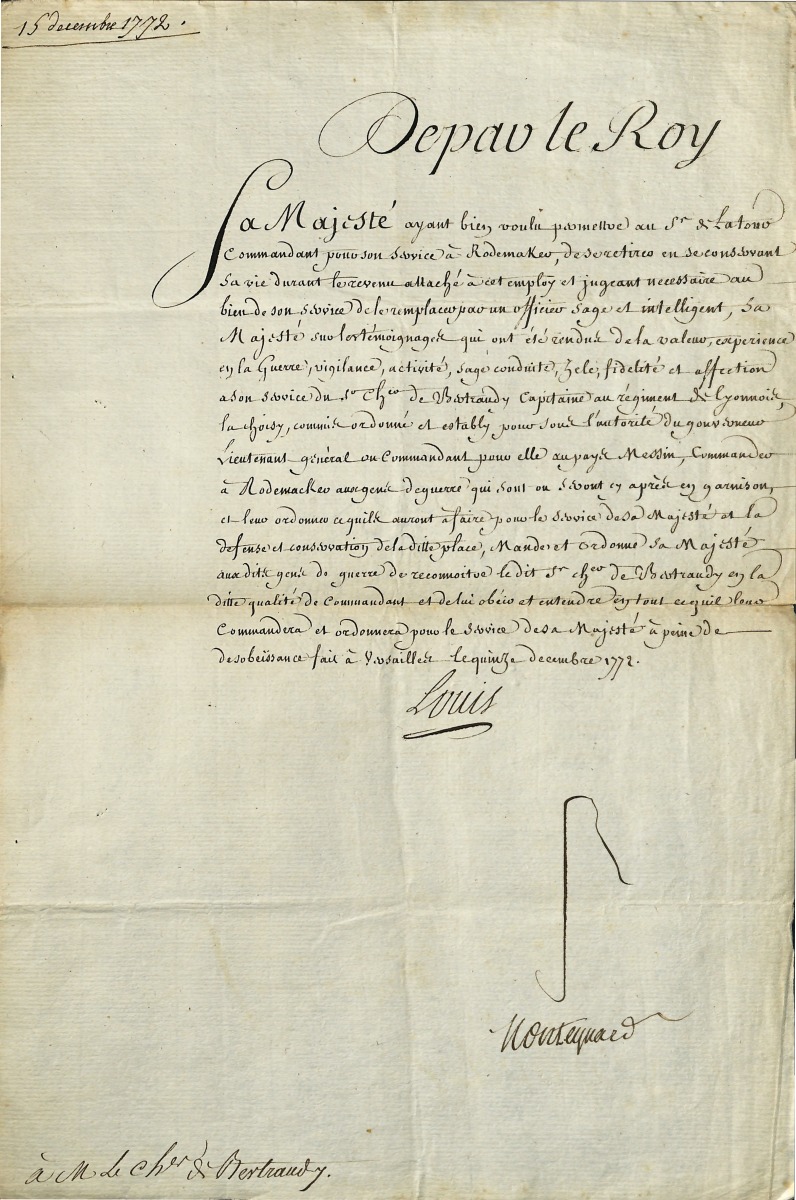 15 decembre 1772.
Depar le Roy
Sa Majesté ayant bien voulu permettre au Sr de Latour
Commandant pour son service à Rodemaker, de se retirer en se conservant
sa vie durant le revenu attaché à cet employ et jugeant necessaire au
bien de son service de le remplacer par un officier sage et intelligent, Sa
Majesté sur les témoignages qui ont été rendus de la valeur, experience
en la Guerre, vigilance, activité, sage conduite, Zele, fidelité et affection
a son service du Sr Cher de Bertrandy Capitaine au régiment de Lyonnois,
la choisy, commis ordonné et estably pour sous l'autorité du gouverneur
Lieutenant général ou Commandant pour elle au pays Messin, Commander
à Rodemacker aux gens de guerre qui sont ou seront cy après en garnison,
et leur ordonner ce quils auront à faire pour le service de sa Majesté et la
defense et conservation de la ditte place, Mande et ordonne Sa Majesté
aux dits gens de guerre de reconnoitre le dit Sr cher de Bertrandy en la
ditte qualité de Commandant et de lui obéir et entendre en tout ce quil leur
Commandera et ordonnera pour le service de sa Majesté à peine de
desobeissance fait à Versailles le quinze decembre 1772.
Louis
Monteynard
à M le cher de Bertrandy.